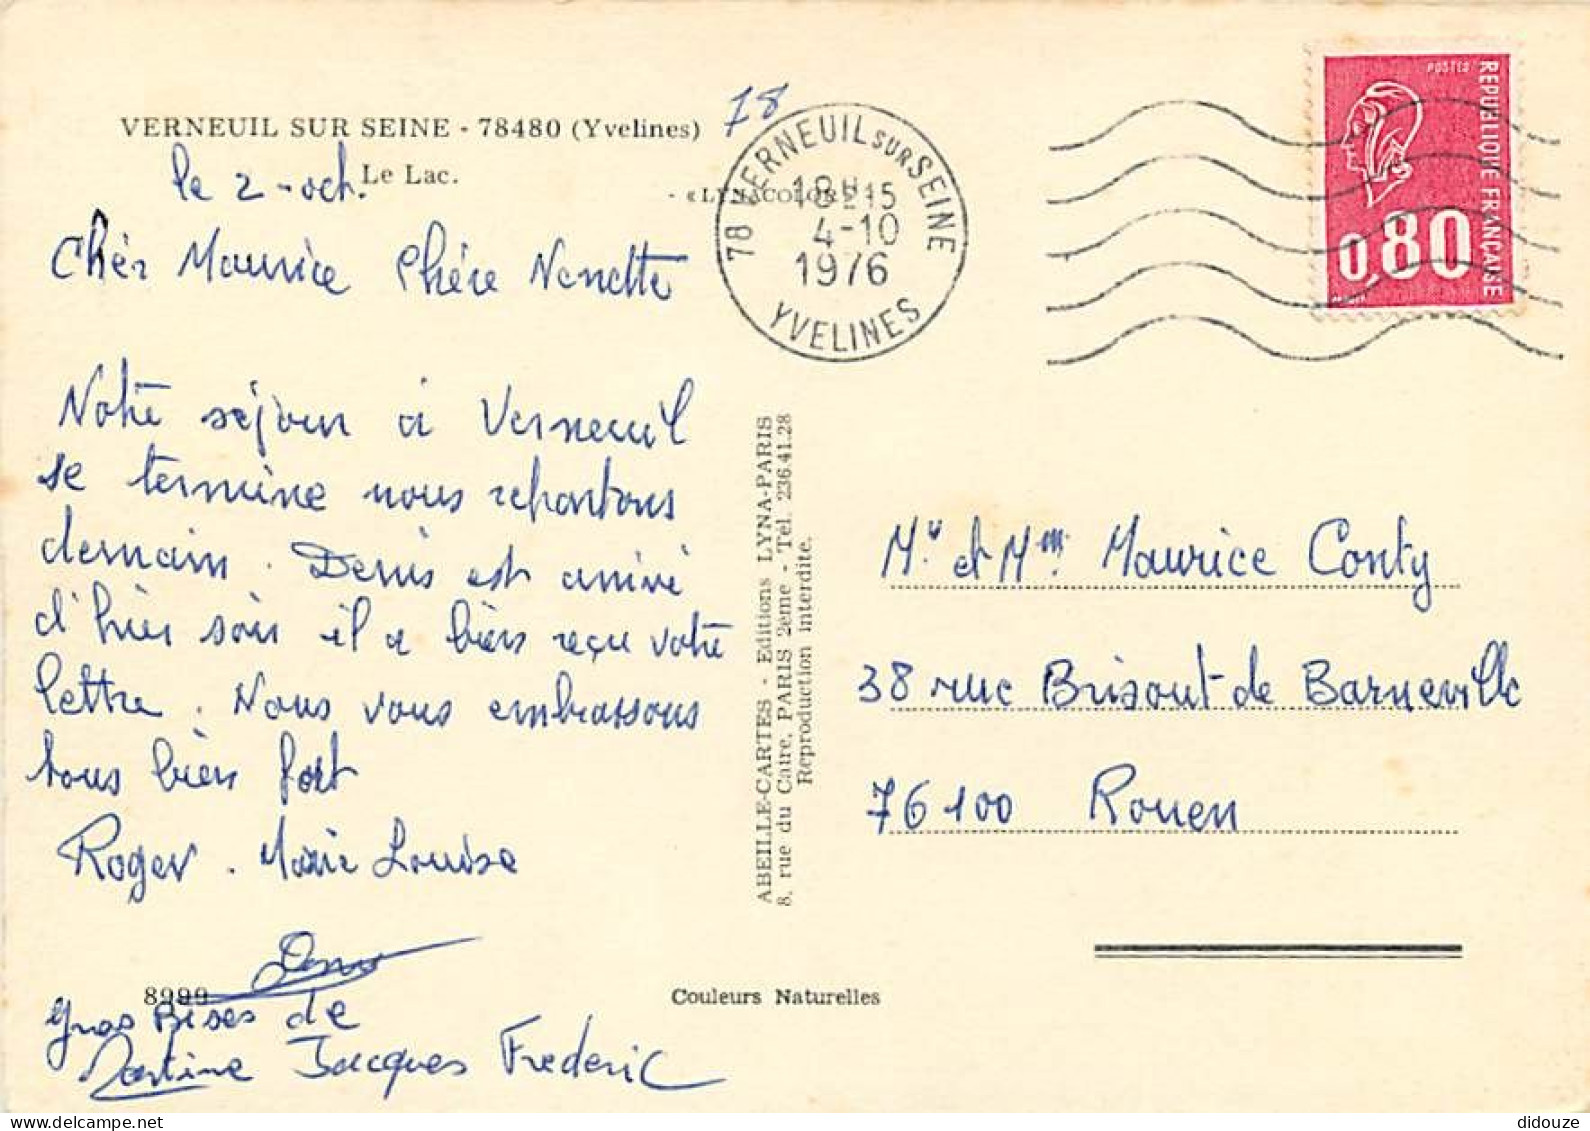 VERNEUIL SUR SEINE - 78480 (Yvelines)
78
Le Lac.
le 2 - oct.
- « LYNACOLOR »
Chèr Maurice Chère Nenette
Notre séjour à Verneuil
se termine nous repartons
demain. Denis est arrivé
d'hier soir il a bien reçu votre
lettre. Nous vous embrassons
tous bien fort
Roger. Marie Louise
8999
gros Bises de
Martine Jacques Frederic
Couleurs Naturelles
ABEILLE-CARTES - Editions LYNA-PARIS
8, rue du Caire, PARIS 2ème - Tél. 236.41.28
Reproduction interdite.
78 VERNEUIL SUR SEINE
18H15
4-10
1976
YVELINES
POSTES
REPUBLIQUE FRANÇAISE
0,80
Mr et Mme Maurice Conty
38 rue Brisout de Barneville
76100 Rouen
didouze